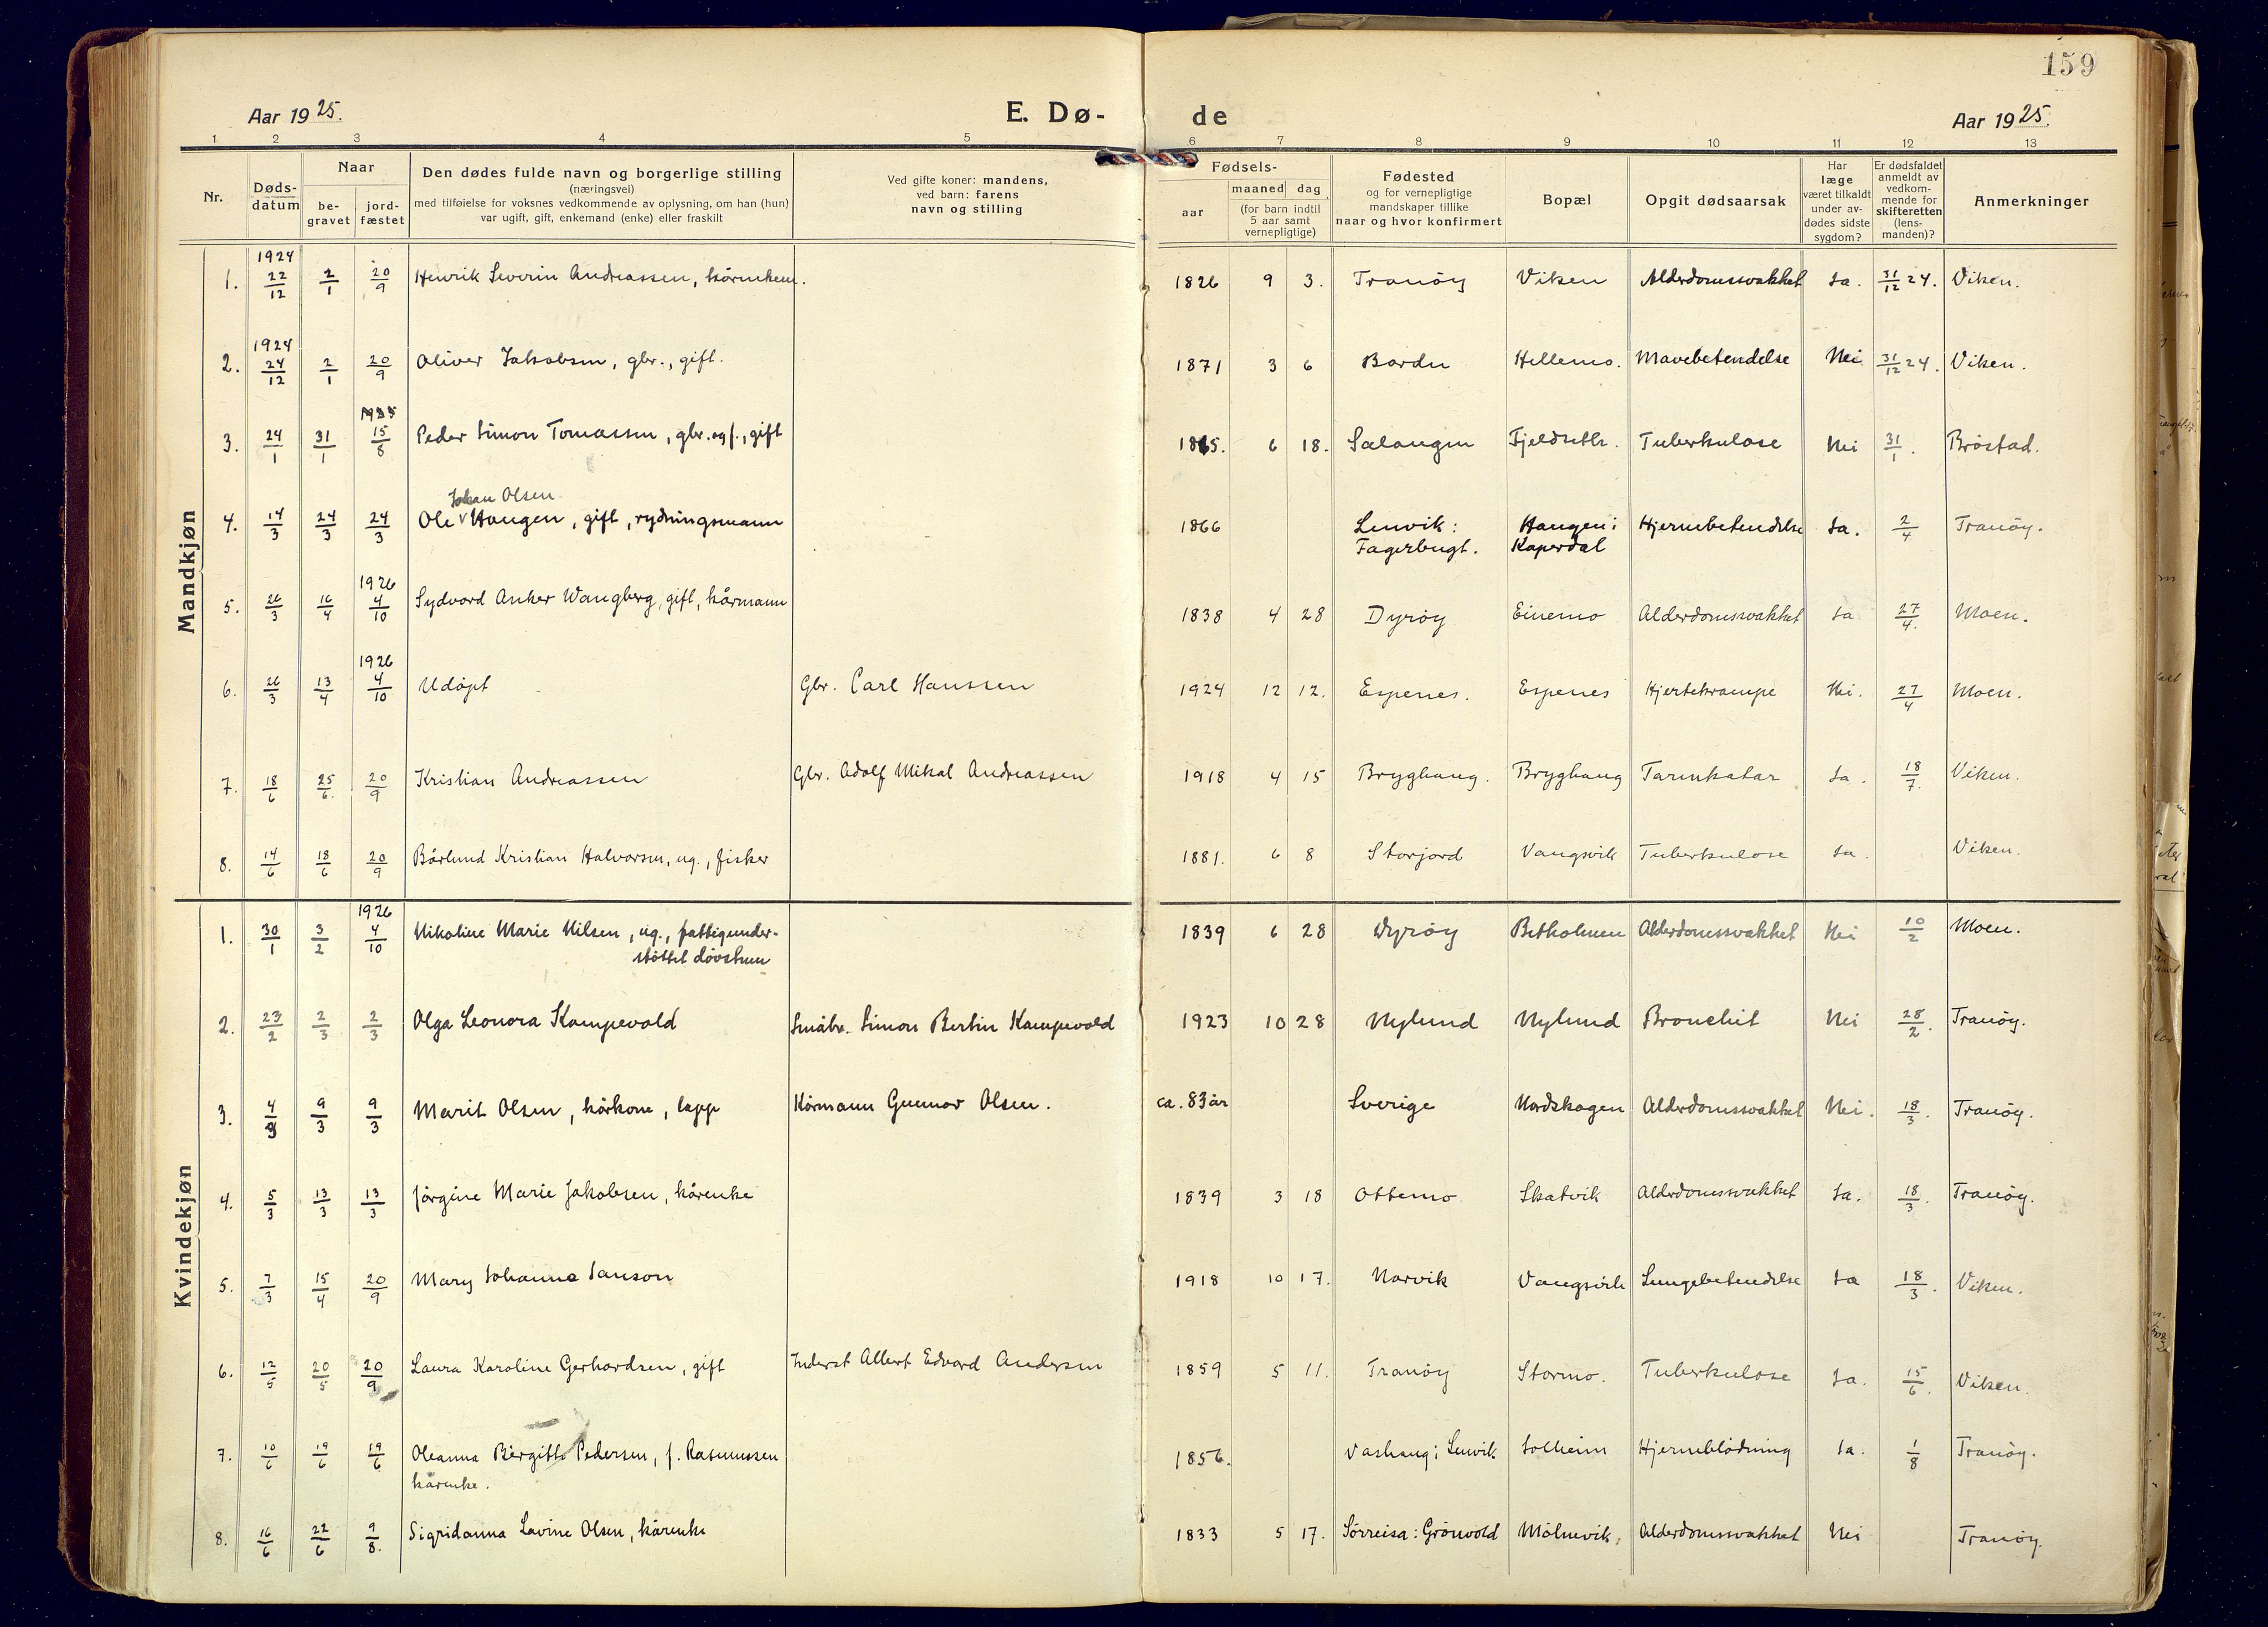 159
Aar 1925. E. Dø- de Aar 1925.
1 2 3 4 5 6 7 8 9 10 11 12 13
Nr. Døds-datum Naar be-gravet jord-fæstet Den dødes fulde navn og borgerlige stilling (næringsvei) med tilføielse for voksnes vedkommende av oplysning, om han (hun) var ugift, gift, enkemand (enke) eller fraskilt Ved gifte koner: mandens, ved barn: farens navn og stilling Fødsels- aar maaned dag (for barn indtil 5 aar samt vernepligtige) Fødested og for vernepligtige mandskaper tillike naar og hvor konfirmert Bopæl Opgit dødsaarsak Har læge været tilkaldt under av-dødes sidste sygdom? Er dødsfaldet anmeldt av vedkom-mende for skifteretten (lens-manden)? Anmerkninger
Mandkjøn
1. 1924 22/12 2/1 20/9 Henrik Severin Andreassen, kårenkem. 1826 9 3. Tranöy Viken Alderdomssvakhet Ja. 31/12 24. Viken.
2. 1924 24/12 2/1 20/9 Oliver Jakobsen, gbr., gift. 1871 3 6 Bardu Hellemo. Mavebetendelse Nei 31/12 24. Viken.
3. 24/1 31/1 15/8 Peder Simon Tomassen, gbr. og f., gift 6 18. Salangen Fjeldsetr. Tuberkulose Nei 31/1. Bröstad.
Johan Olsen
4. 14/3 24/3 24/3 Ole v Haugen, gift, rydningsmann 1866 Lenvik: Haugen i Hjernebetendelse Ja. 2/4 Tranöy.
Fagerbugt. Kaperdal
5. 26/3 16/4 1926 4/10 Sydvard Anker Wangberg, gift, kårmann 1838 4 28 Dyröy Einemo Alderdomssvakhet Ja 27/4. Moen.
6. 26/3 13/4 1926 4/10 Udöpt Gbr. Carl Hanssen 1924 12 12. Espenes. Espenes Hjertekrampe Nei. 27/4 Moen.
7. 18/6 25/6. 20/9 Kristian Andreassen Gbr. Adolf Mikal Andreassen 1918 4 15 Bryghaug. Bryghaug Tarmkatar Ja. 18/7. Viken.
8. 14/6 18/6 20/9 Bårlund Kristian Halvorsen, ug., fisker 1881. 6 8 Storjord Vangsvik Tuberkulose Ja. Viken.
Kvindekjøn
1. 30/1 3/2 1926 4/10 Nikoline Marie Nilsen, ug., fattigunder- 1839 6 28 Dyröy Betholmen Alderdomssvakhet Nei 10/2 Moen.
støttet døvstum
2. 23/2 2/3 2/3 Olga Leonora Kampevold Småbr. Simon Bertin Kampevold 1923 10 28 Nylund Nylund Bronchit Nei 28/2. Tranöy.
3. 4/3 9/3 9/3 Marit Olsen, kårkone, lapp Kårmann Gunnar Olsen. ca. 83 år Sverige Nordskogen Alderdomssvakhet Nei. 18/3. Tranöy.
4. 5/3 13/3 13/3 Jörgine Marie Jakobsen, kårenke 1839 3 18 Ottemo Skatvik Alderdomssvakhet Ja. 18/3. Tranöy.
5. 7/3 15/4 20/9 Mary Johanna Janson 1918 10 17. Narvik Vangsvik Lungebetendelse Ja 18/3. Viken.
6. 12/5 20/5 20/9 Laura Karoline Gerhardsen, gift Inderst Albert Edvard Andersen 1859 5 11. Tranöy Stormo. Tuberkulose Ja. 15/6. Viken.
7. 10/6 19/6 19/6 Oleanna Birgitte Pedersen, f. Rasmussen 1856. Vashaug i Lenvik Solheim Hjerneblödning Ja. 1/8 Tranöy.
kårenke.
8. 16/6 22/6 9/8. Sigridanna Lavine Olsen, kårenke 1833 5 17. Sörreisa: Grönvold Mölnevik, Alderdomssvakhet Nei Tranöy.